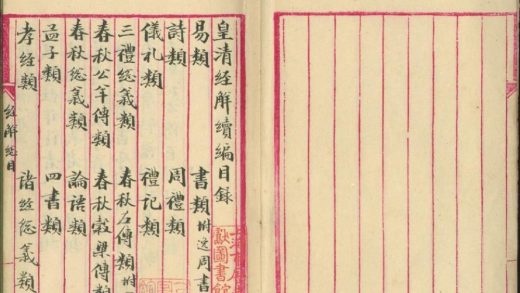 皇清經解續編目錄
易類 書類附逸周書
詩類 周禮類
儀礼類 禮記類
三禮總義類 春秋左傳類附
春秋公羊傳類 春秋穀梁傳類
春秋總義類 論語類
孟子類 四書類
孝經類 諸經總義類
經解總目